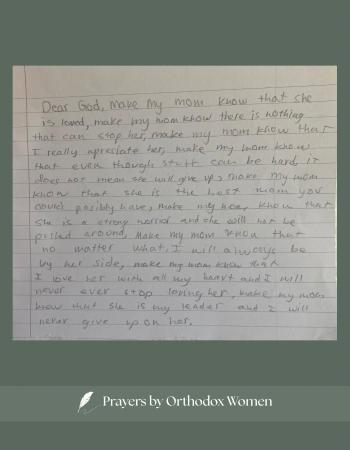 Dear God, Make my mom know that she
is loved, make my mom know there is nothing
that can stop her, make my mom know that
I really apreciate her, make my mom know
that even though stuff can be hard, it
does not mean she will give up, make my mom
know that she is the best mom you
could posibly have, make my mom know that
she is a strong worrior and she will not be
pulled around, Make my mom know that
no matter what, I will always be
by her side, make my mom know that
I love her with all my heart and I will
never ever stop loving her, make my mom
know that she is my leader and I will
never give up on her.
Prayers by Orthodox Women